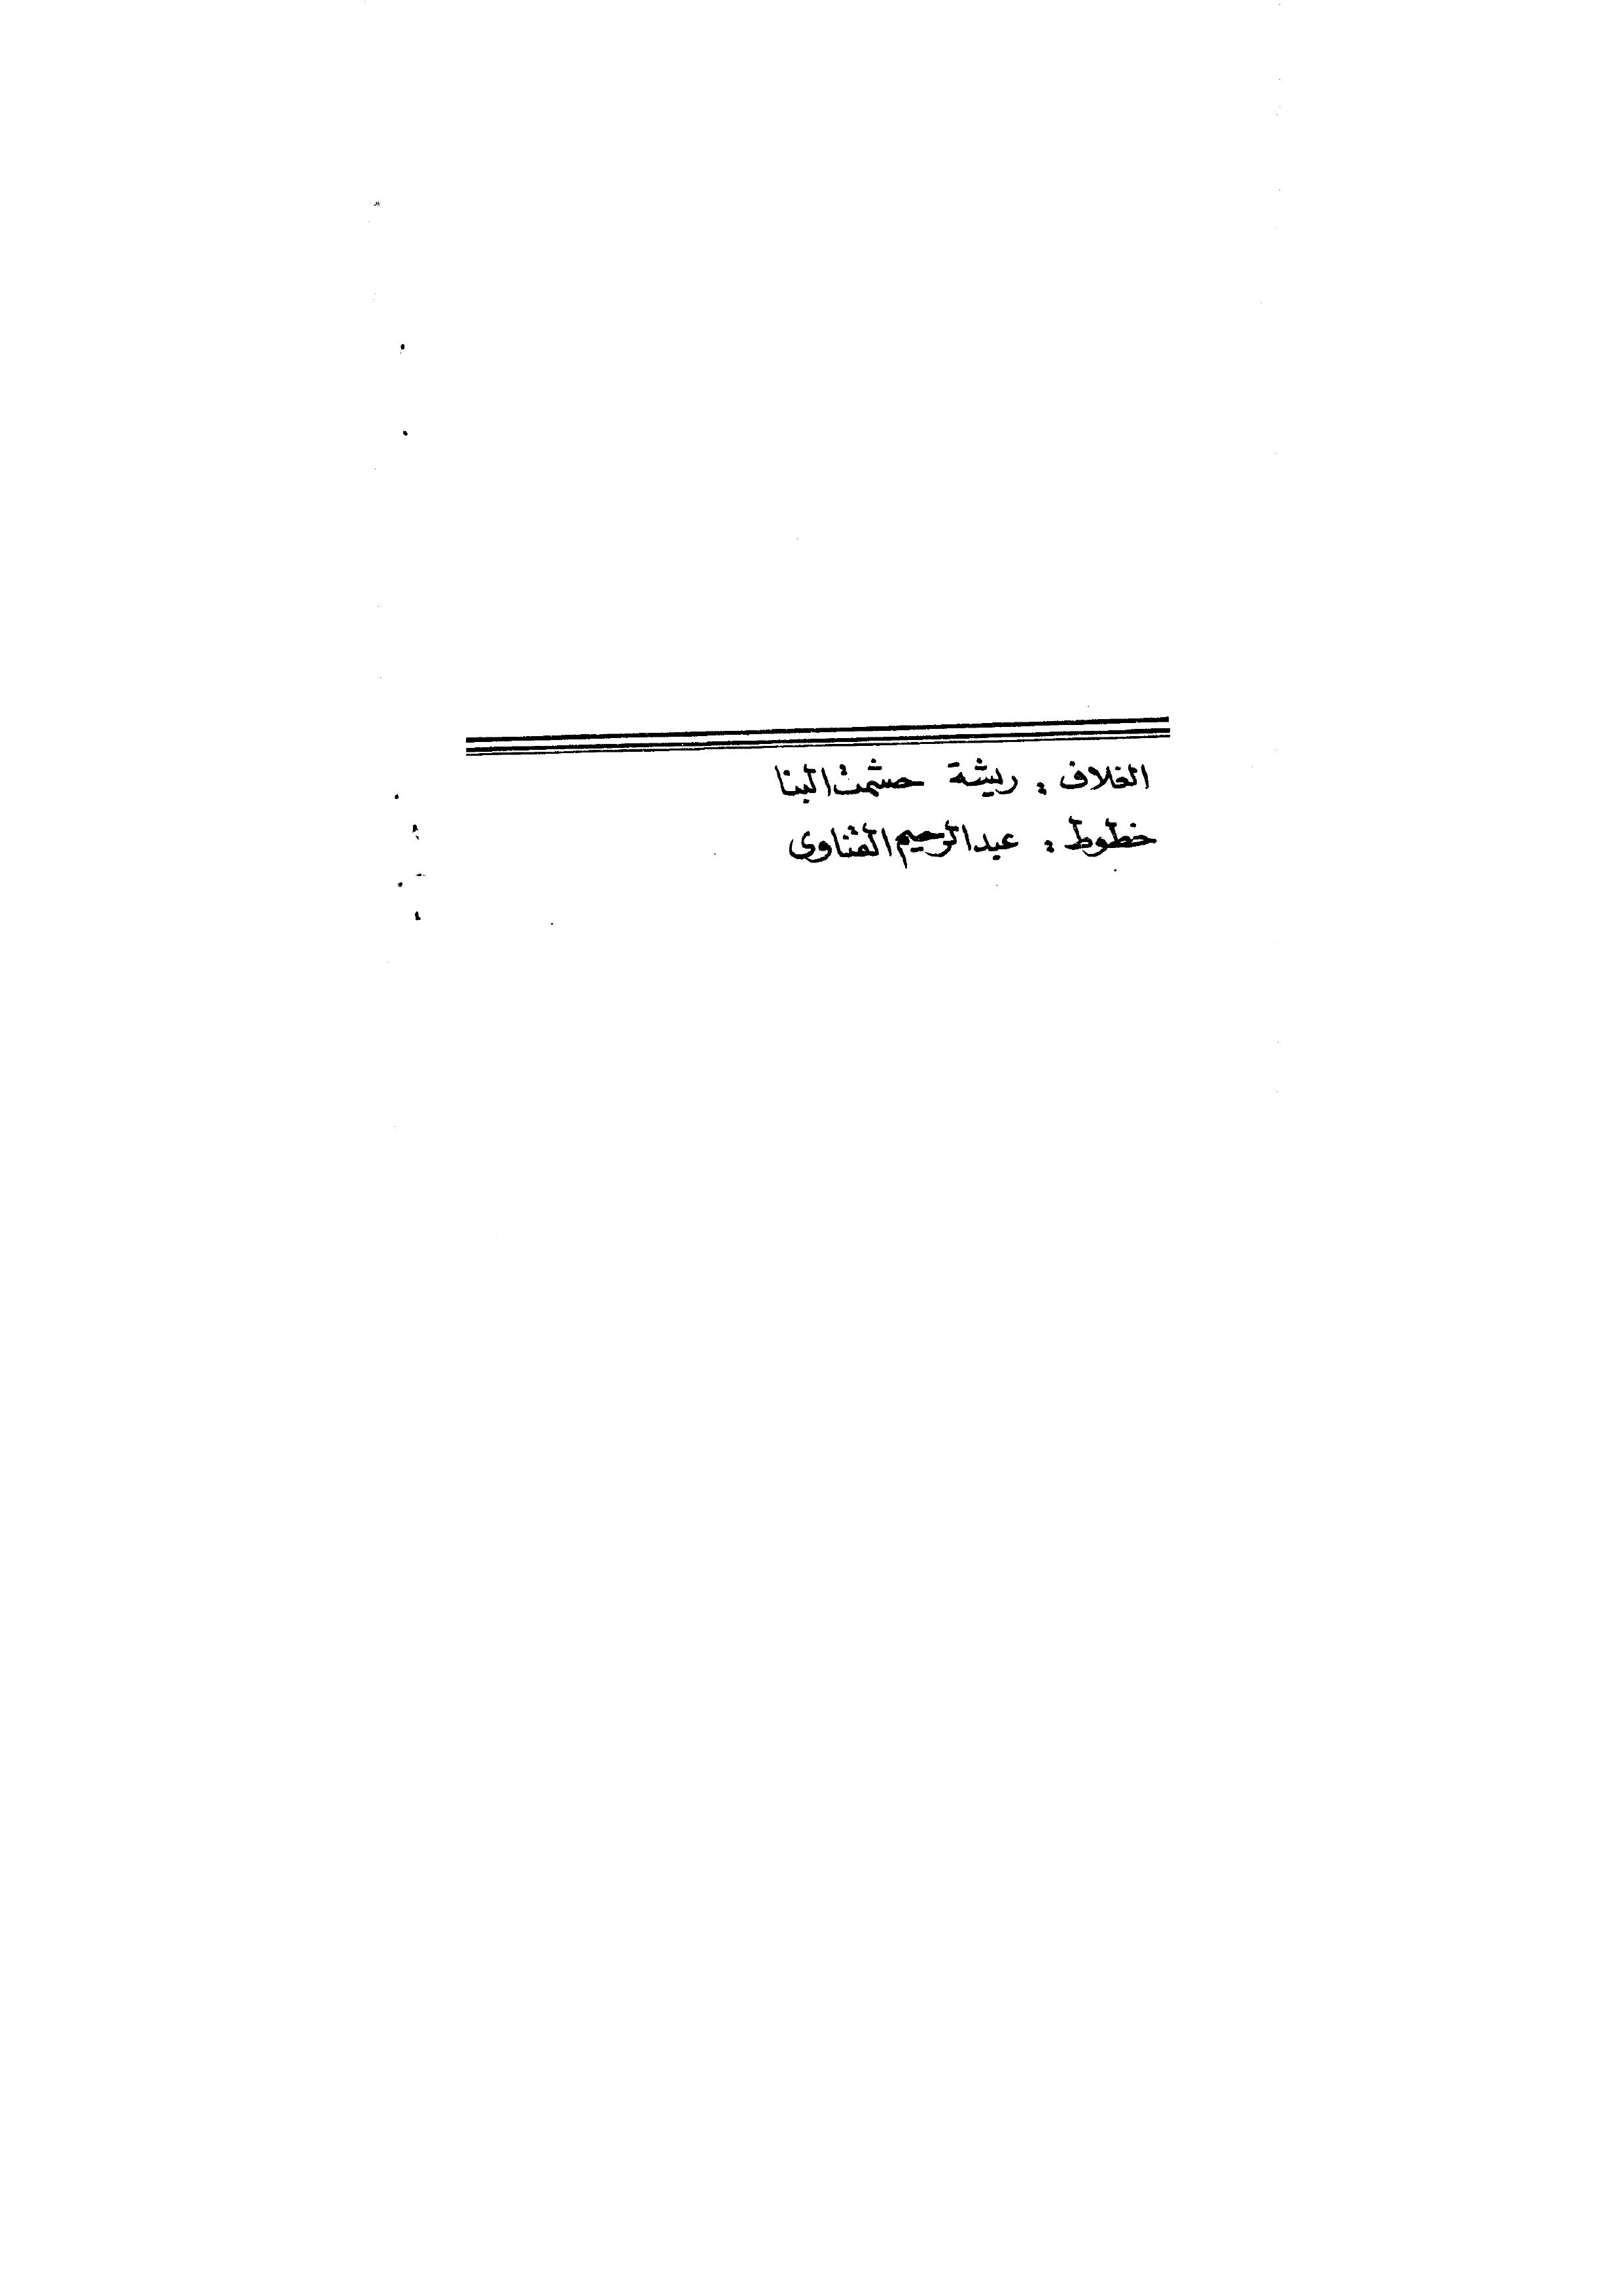 الغلاف : ريشة حشمت البنا
خطوط : عبد الرحيم القناوى